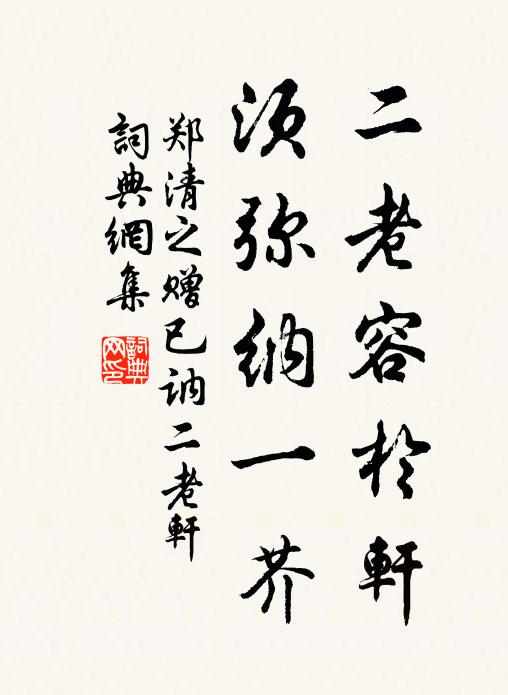 二老容於軒
须弥纳一芥
郑清之赠已讷二老軒
詞典網集
詞典網印